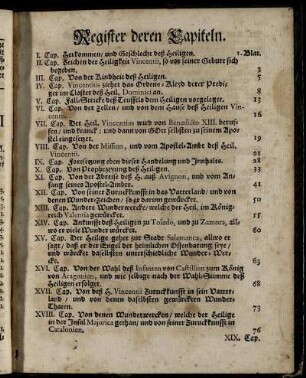 Register deren Capiteln.
I. Cap. Herkommen, und Geschlecht deß Heiligen. 1. Blat.
II. Cap. Zeichen der Heiligkeit Vincentii, so vor seiner Geburt sich
begeben. 3
III. Cap. Von der Kindheit deß Heiligen. 5
IV. Cap. Vincentius ziehet das Ordens-Kleyd derer Predi-
ger im Closter deß Heil. Dominici an. 8
V. Cap. Fall-Strick deß Teuffels dem Heiligen vorgelegt. 13
VI. Cap. Von der Zellen, und von dem Hauß deß Heiligen Vin-
centii. 16
VII. Cap. Der Heil. Vincentius wird von Benedicto XIII. beruf-
fen, und kranck: und dann von GOtt selbsten zu seinem Apo-
stel eingesetzt. 19
VIII. Cap. Von der Mission, und vom Apostel-Ambt deß Heil.
Vincentii.
IX. Cap. Fortsetzung eben dieser Handlung und Innhalts. 28
X. Cap. Von Prophezeyung deß Heiligen.
XI. Cap. Von der Abreise deß H. auß Avignon, und vom An-
fang seines Apostel-Ambts.
XII. Cap. Von seiner Zuruckkunfft in das Vatterland, und von
denen Wunder-Zeichen, so er darinn gewürcket. 50
XIII. Cap. Andere Wunderwerck, welche der Heil. im König-
reich Valentia gewürcket.
XIV. Cap. Ankunfft deß Heiligen zu Toledo, und zu Zamora, allwo
er viele Wunder würcket.
XV. Cap. Der Heilige gehet zur Stadt Salamanca, allwo er
sagt, daß er der Engel der heimlichen Offenbahrung seye, und
würcket daselbsten unterschiedliche Wunder-Wer-
cke. 65
XVI. Cap. Von der Wahl deß Infanten von Castilien zum König
von Aragonien, und wie selbige nach der Wahl-Stimme deß
Heiligen erfolget. 68
XVII. Cap. Von deß H. Vincentii Zuruckkunfft in sein Vatter-
land, und von denen daselbsten gewürckten Wunder-
Thaten. 73
XVIII. Cap. Von denen Wunderwercken, welche der Heilige
in der Insul Majorica gethan, und von seiner Zuruckkunfft in
Catalonien. 76
XIX. Cap.